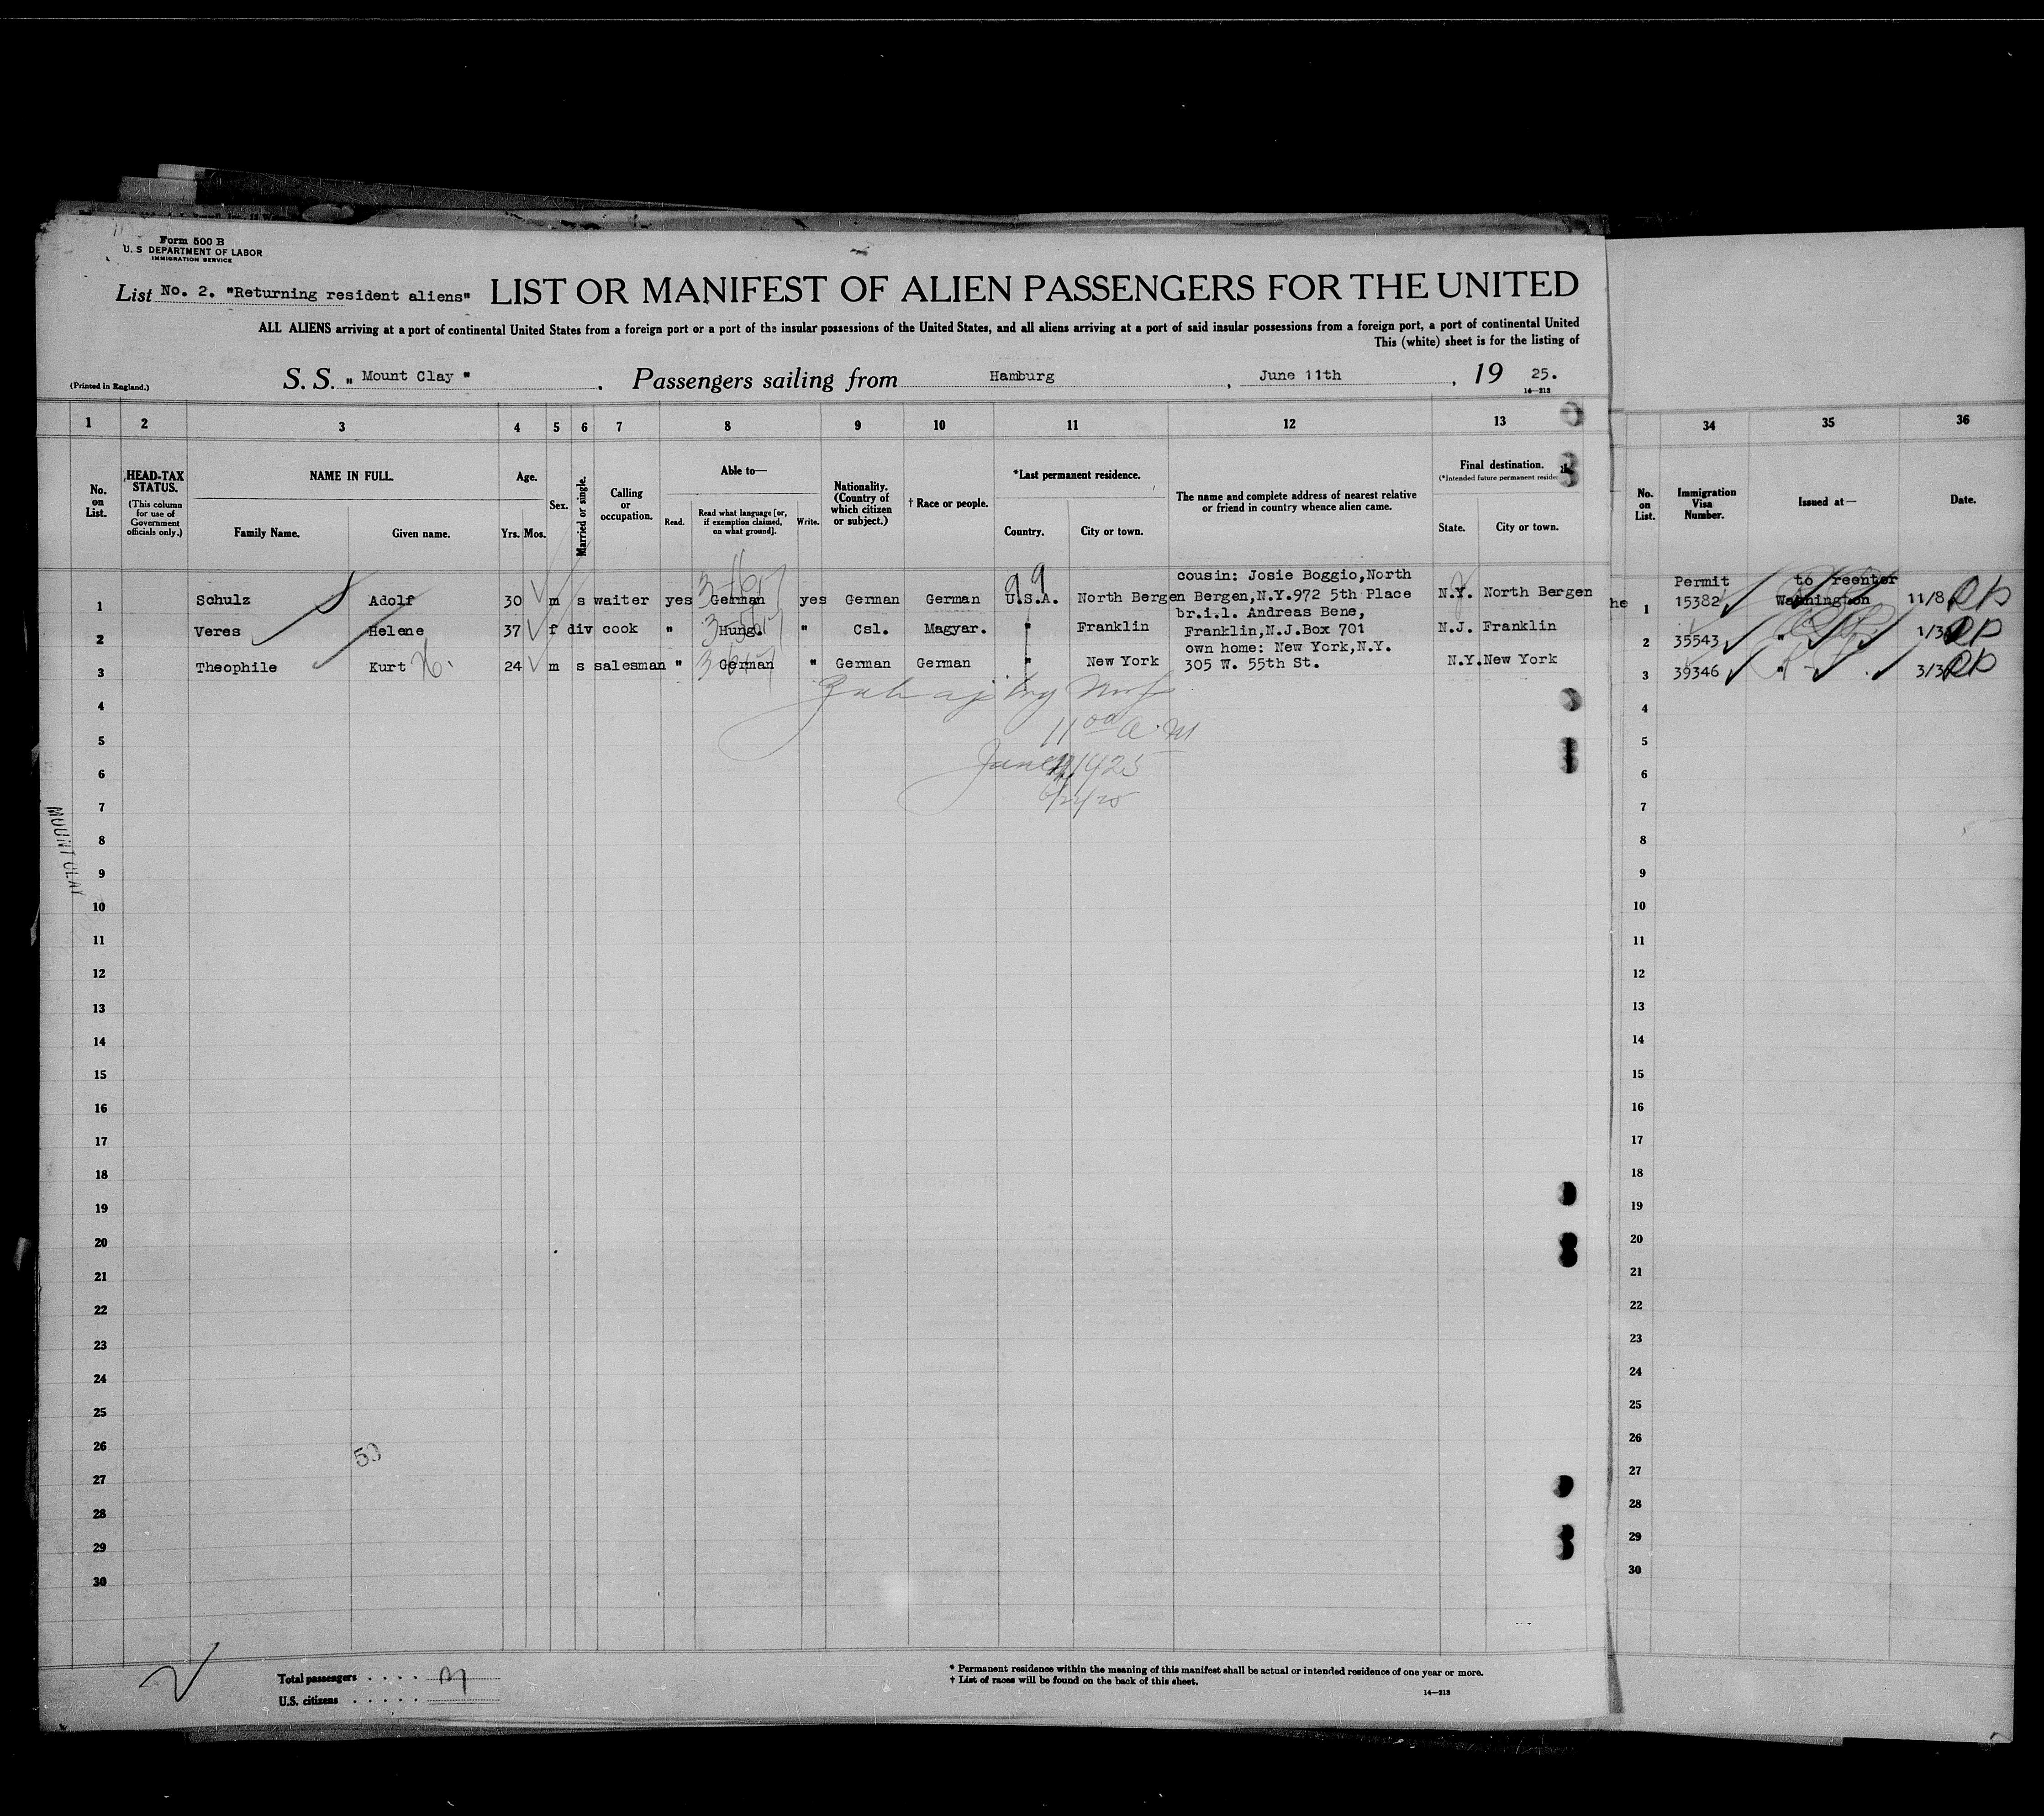 Form 500 B
U. S DEPARTMENT OF LABOR
IMMIGRATION SERVICE
List No. 2. "Returning resident aliens" LIST OR MANIFEST OF ALIEN PASSENGERS FOR THE UNITED
ALL ALIENS arriving at a port of continental United States from a foreign port or a port of the insular possessions of the United States, and all aliens arriving at a port of said insular possessions from a foreign port, a port of continental United
This (white) sheet is for the listing of
(Printed in England.) S. S. " Mount Clay ". Passengers sailing from Hamburg, June 11th, 19 25.
14—213
1 2 3 4 5 6 7 8 9 10 11 12 13 34 35 36
No. on List. HEAD-TAX STATUS. (This column for use of Government officials only.) NAME IN FULL. Family Name. Given name. Age. Yrs. Mos. Sex. Married or single. Calling or occupation. Able to— Read. Read what language [or, if exemption claimed, on what ground]. Write. Nationality. (Country of which citizen or subject.) † Race or people. *Last permanent residence. Country. City or town. The name and complete address of nearest relative or friend in country whence alien came. Final destination. (*Intended future permanent reside State. City or town. No. on List. Immigration Visa Number. Issued at— Date.
cousin: Josie Boggio,North Permit to reenter
1 Schulz Adolf 30 m s waiter yes German yes German German U.S.A. North Bergen Bergen,N.Y.972 5th Place N.Y. North Bergen he 1 15382 Washington 11/8
br.i.l. Andreas Bene,
2 Veres Helene 37 f div cook " Hung. " Csl. Magyar. " Franklin Franklin,N.J.Box 701 N.J. Franklin 2 35543 "
own home: New York,N.Y.
3 Theophile Kurt 24 m s salesman " German " German German " New York 305 W. 55th St. N.Y. New York 3 39346 "
4 4
11 00 a.m
5 5
6 6
7 7
8 8
MOUNT CLAY
9 9
10 10
11 11
12 12
13 13
14 14
15 15
16 16
17 17
18 18
19 19
20 20
21 21
22 22
23 23
24 24
25 25
26 26
27 27
28 28
29 29
30 30
Total passengers . . . .
U.S. citizens . . . . .
* Permanent residence within the meaning of this manifest shall be actual or intended residence of one year or more.
† List of races will be found on the back of this sheet.
14—213